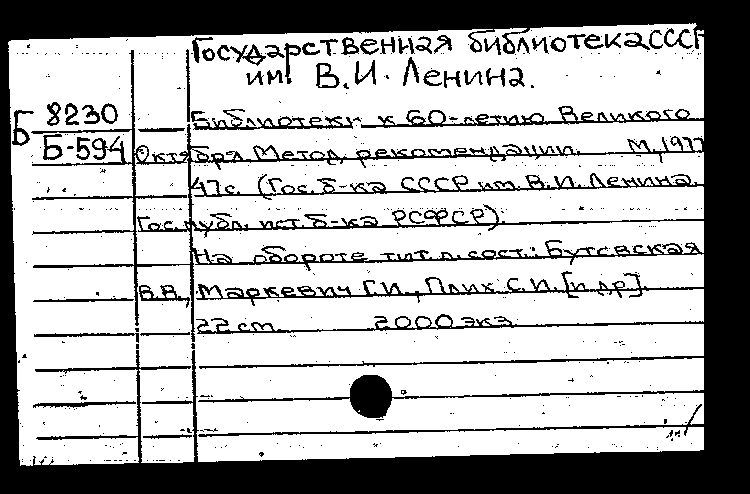 Государственная библиотека СССР
им. В.И. Ленина.
Б 8230
Б-594
Библиотеки к 60-летию Великого
Октября. Метод. рекомендации. М, 1977
47с. (Гос. б-ка СССР им. В.И. Ленина.
Гос. публ. ист. б-ка РСФСР).
На обороте тит. л. сост.: Бутевская
В.В., Маркевич Г.И., Плих С.И. [и др].
22 см. 2000 экз.